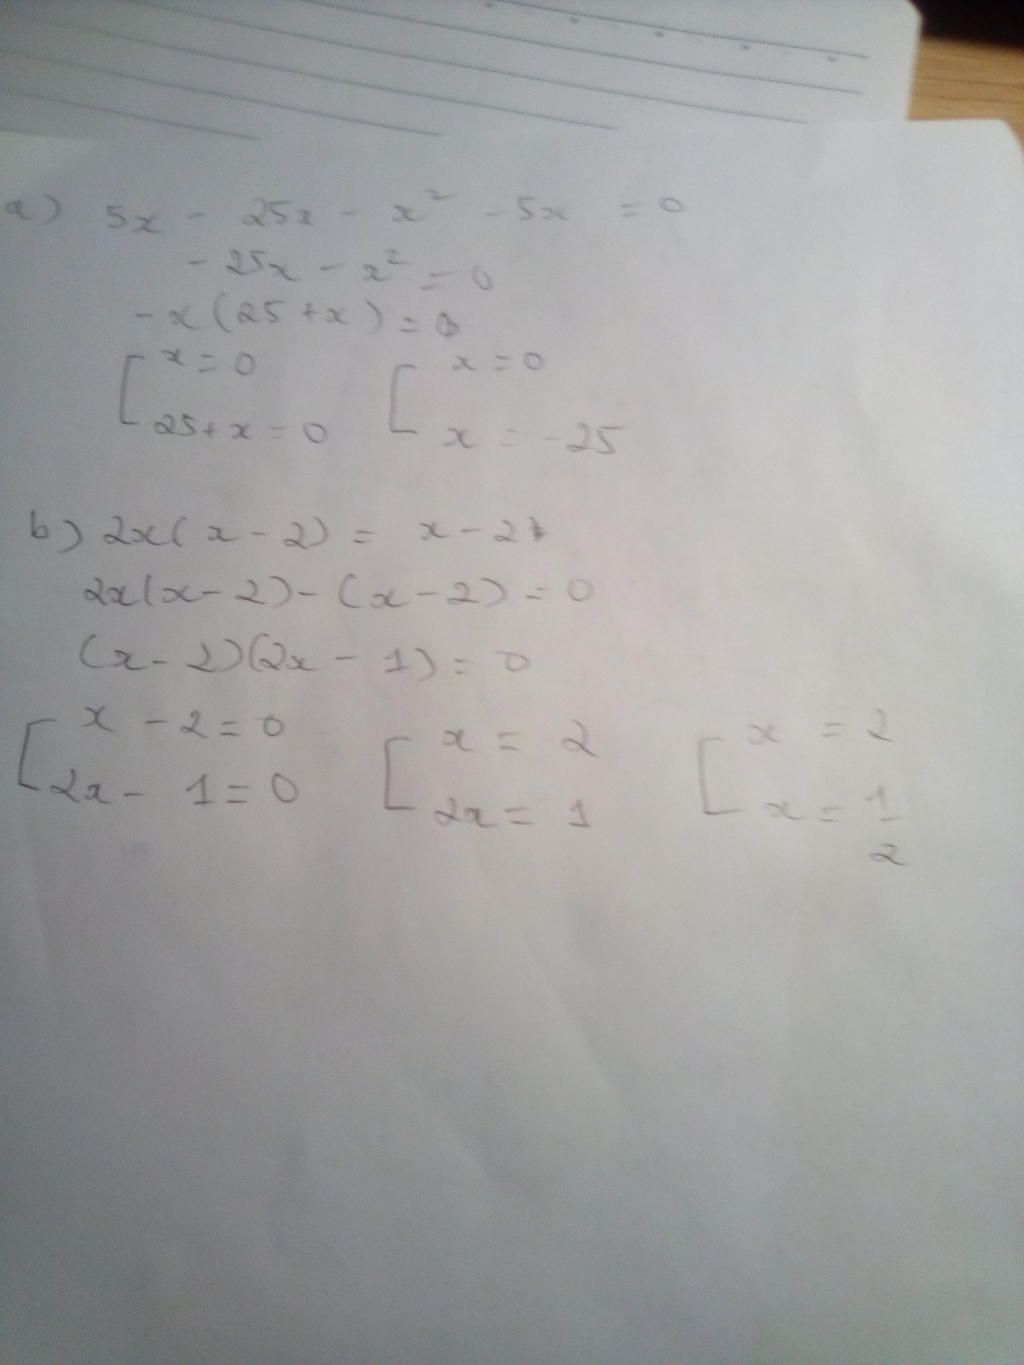 a) 5x - 25x - x² - 5x = 0
- 25x - x² = 0
- x (25 + x) = 0
[ x = 0 [ x = 0
25 + x = 0 x = -25
b) 2x(x - 2) = x - 2
2x(x - 2) - (x - 2) = 0
(x - 2)(2x - 1) = 0
[ x - 2 = 0 [ x = 2 [ x = 2
2x - 1 = 0 2x = 1 x = 1
2